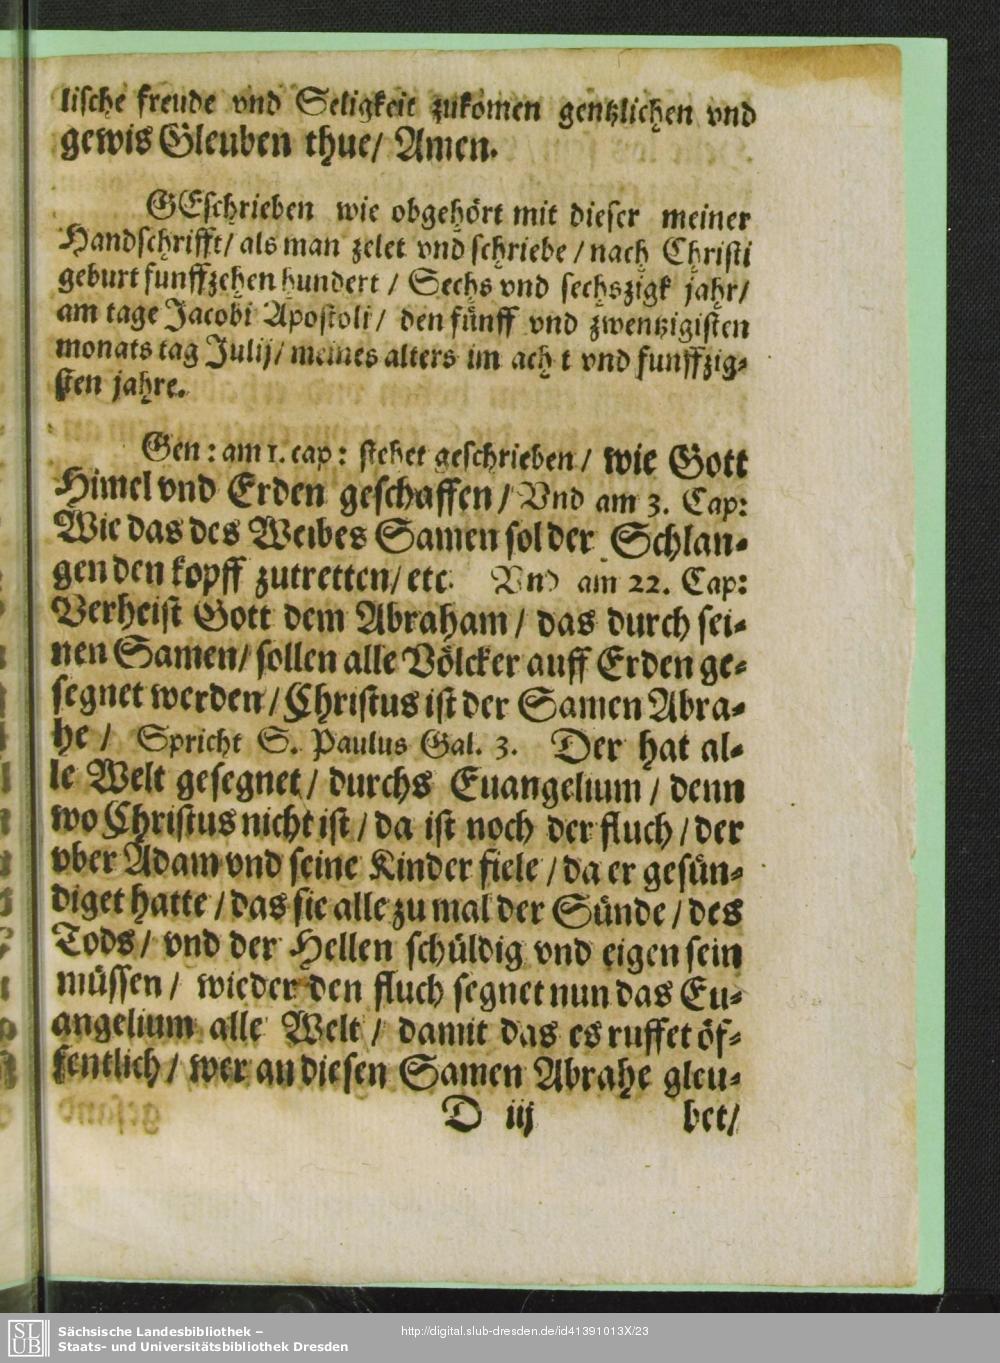 lische freude vnd Seligkeit zukomen gentzlichen vnd
gewis Gleuben thue/ Amen.
GEschrieben wie obgehört mit dieser meiner
Handschrifft/ als man zelet vnd schriebe / nach Christi
geburt funffzehen hundert / Sechs vnd sechszigk jahr/
am tage Jacobi Apostoli / den fünff vnd zwentzigisten
monats tag Julij/ meines alters im acht vnd funffzig-
sten jahre.
Gen: am 1. cap: stehet geschrieben / wie Gott
Himel vnd Erden geschaffen / Vnd am 3. Cap:
Wie das des Weibes Samen sol der Schlan-
gen den kopff zutretten/ etc. Vnd am 22. Cap:
Verheist Gott dem Abraham / das durch sei-
nen Samen/ sollen alle Völcker auff Erden ge-
segnet werden / Christus ist der Samen Abra-
he / Spricht S. Paulus Gal. 3. Der hat al-
le Welt gesegnet / durchs Euangelium / denn
wo Christus nicht ist / da ist noch der fluch / der
vber Adam vnd seine Kinder fiele / da er gesün-
diget hatte / das sie alle zu mal der Sünde / des
Tods / vnd der Hellen schüldig vnd eigen sein
müssen / wieder den fluch segnet nun das Eu-
angelium alle Welt / damit das es ruffet öf-
fentlich / wer an diesen Samen Abrahe gleu-
D iij bet/
SLUB Sächsische Landesbibliothek –
Staats- und Universitätsbibliothek Dresden
http://digital.slub-dresden.de/id41391013X/23